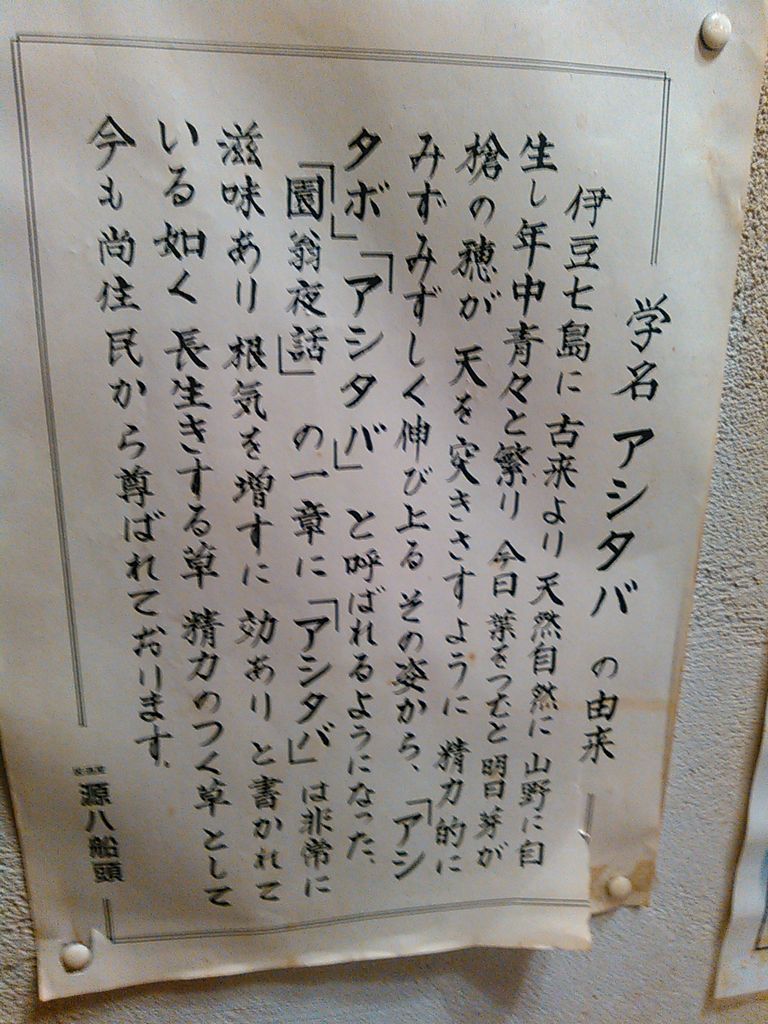 学名 アシタバ の由来
伊豆七島に 古来より 天然自然に 山野に自
生し年中青々と繁り 今日 葉をつむと 明日 芽が
槍の穂が 天を突きさすように 精力的に
みずみずしく伸び上る その姿から、「アシ
タボ」「アシタバ」と呼ばれるようになった、
「園翁夜話」の一章に「アシタバ」は非常に
滋味あり 根気を増すに 効あり と書かれて
いる如く 長生きする草 精力のつく草 として
今も尚住民から尊ばれております、
源八船頭